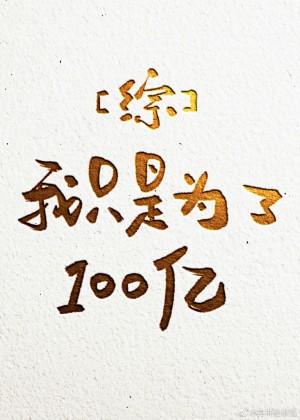 [综]
我只是为了
100亿